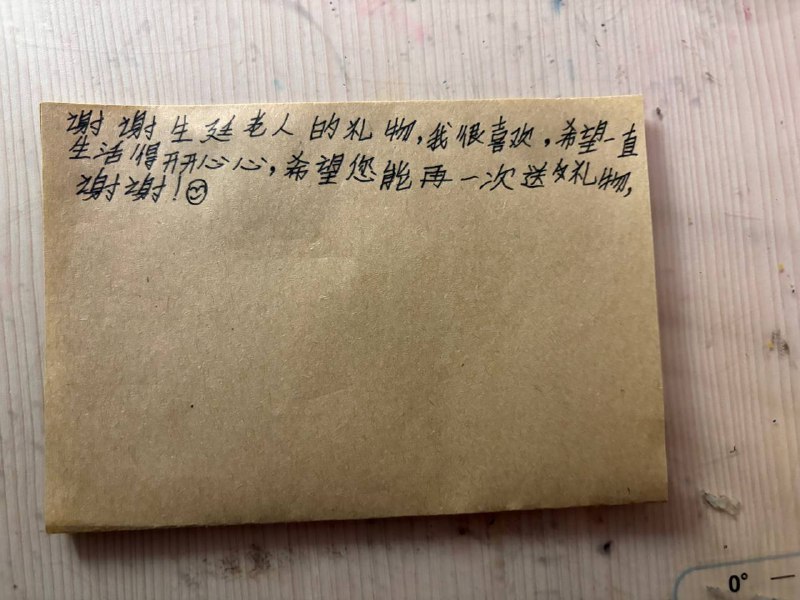 谢谢生廷老人的礼物,我很喜欢,希望一直
生活得开开心心,希望您能再一次送礼物,
谢谢!
0°